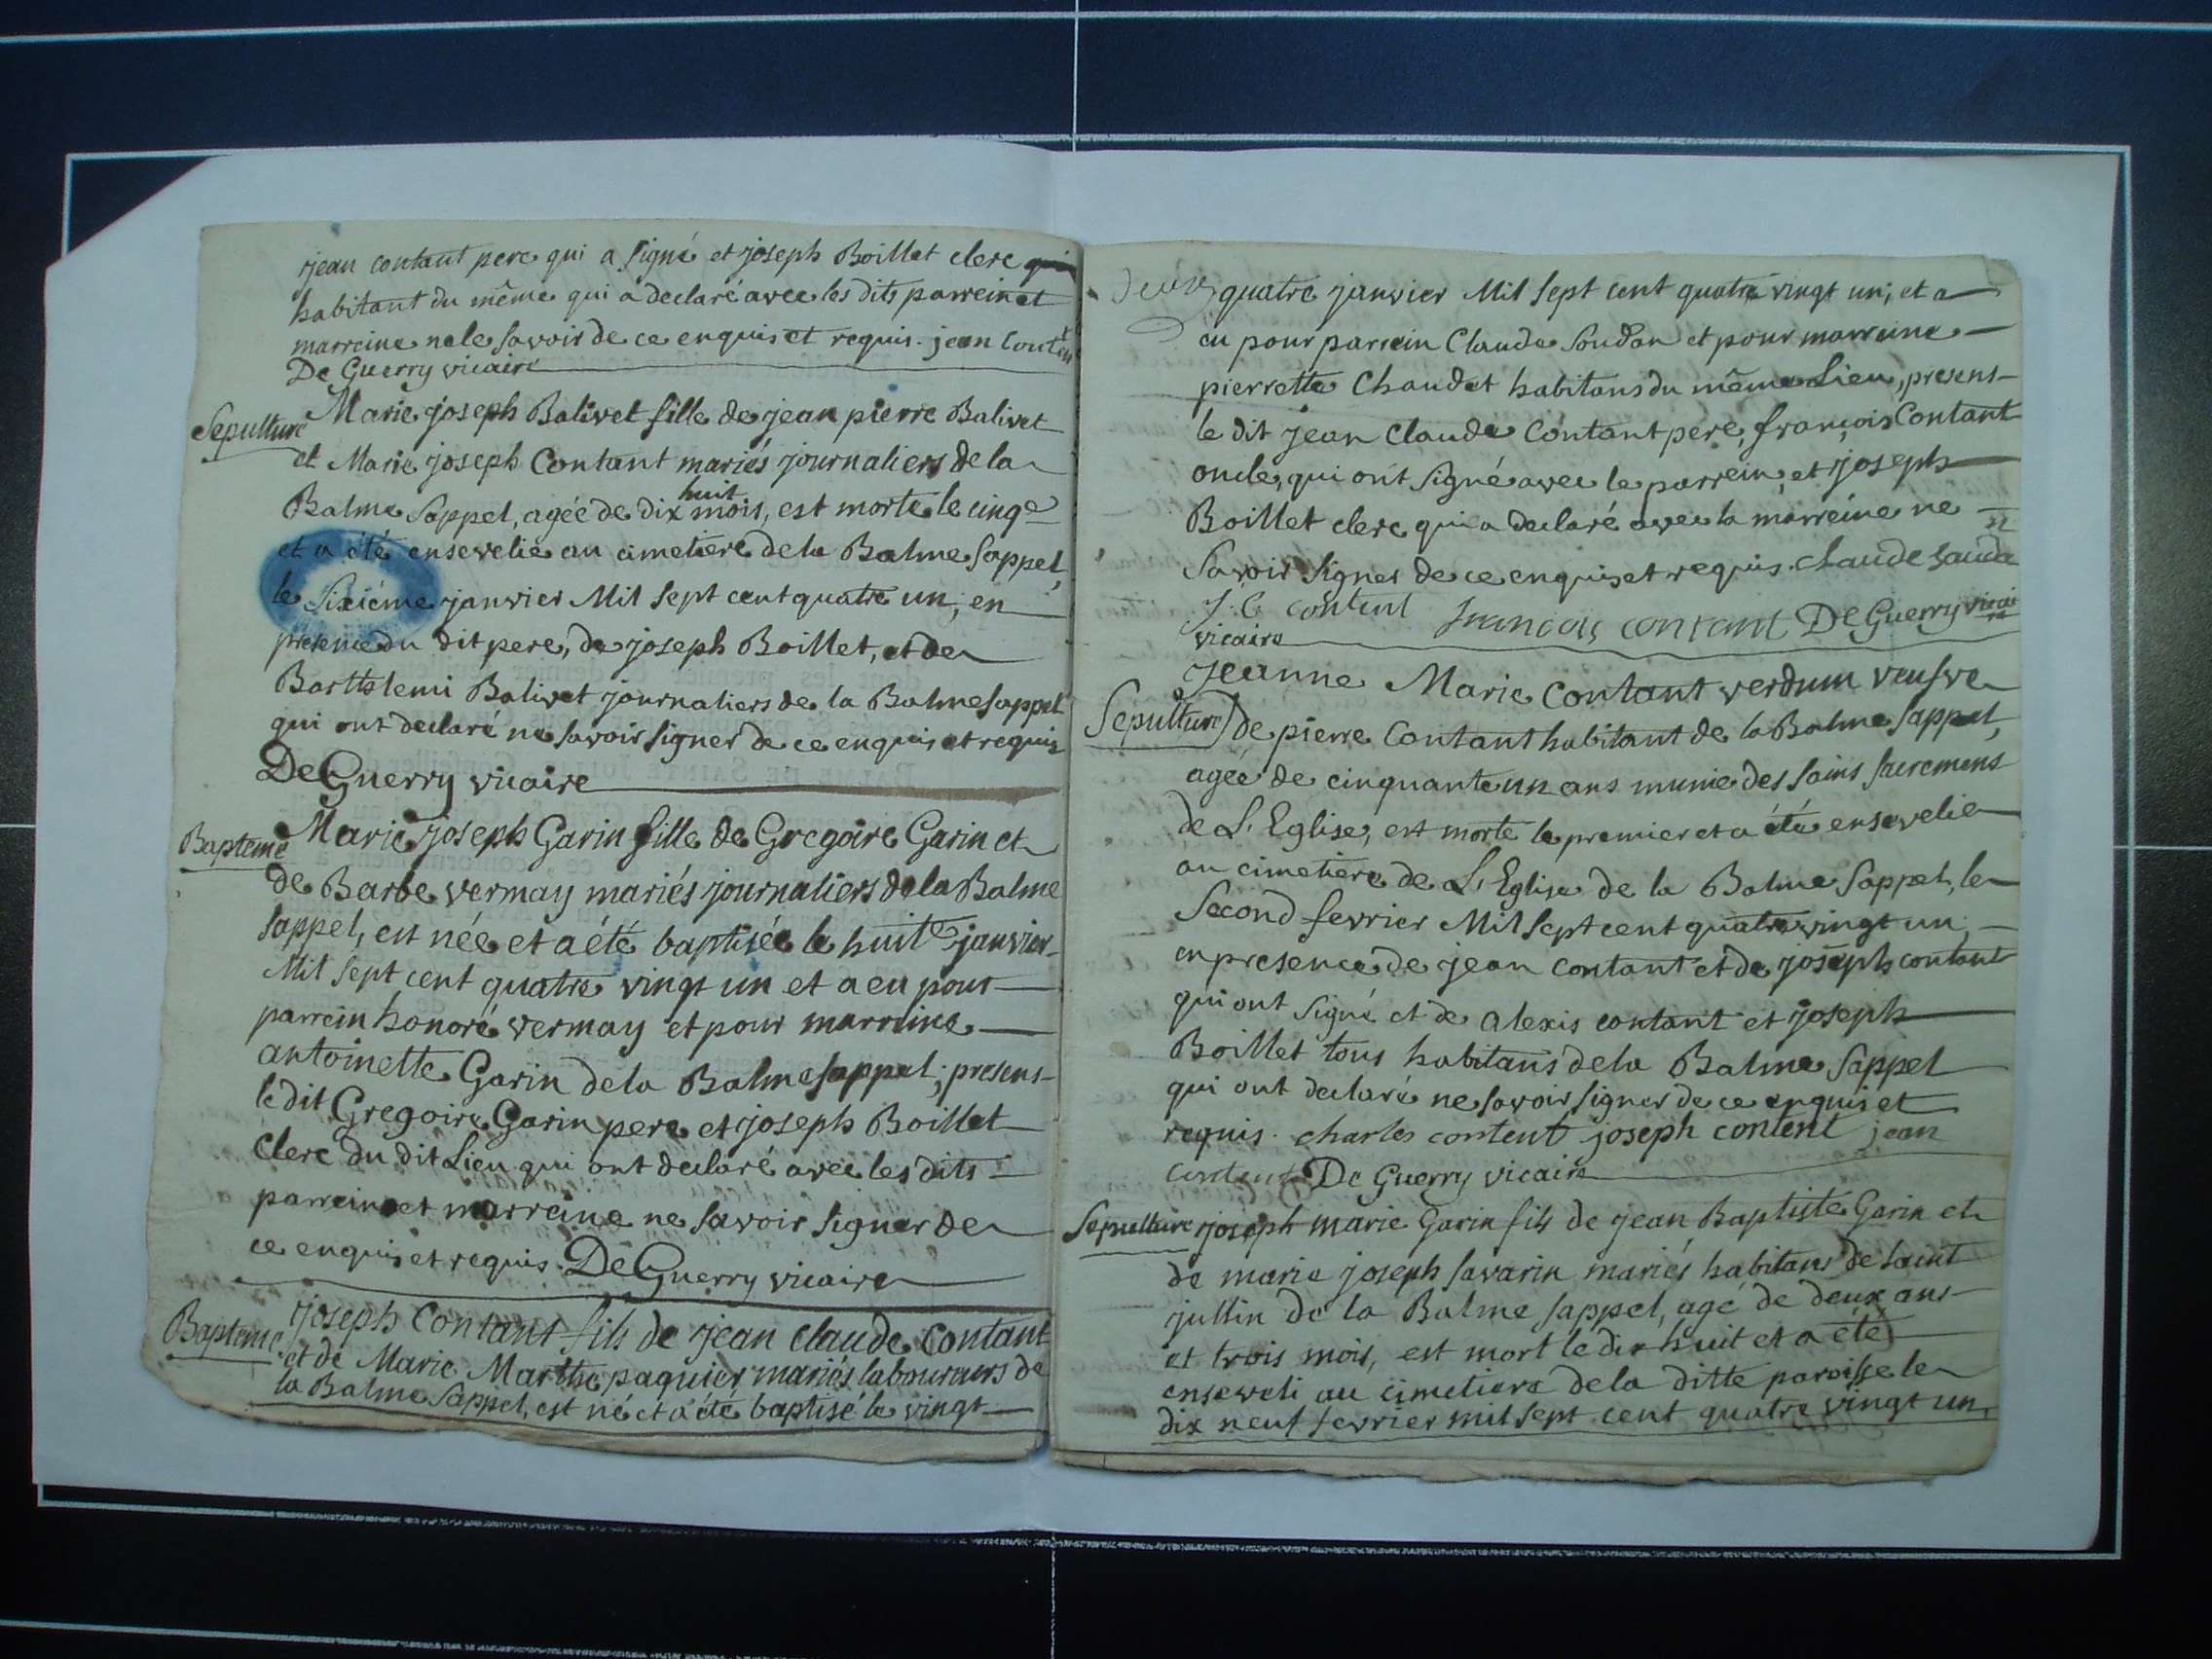 jean contant pere qui a signé et joseph Boillet clerc qui
habitant du même qui a declaré avec les dits parrein et
marreine ne le savoir de ce enquis et requis. jean Contan
De Guerry vicaire
Sepulture Marie joseph Balivet fille de jean pierre Balivet
et Marie joseph Contant mariés journaliers de la
Balme Sappel, agée de dix huit mois, est morte le cinqe
et a été ensevelie au cimetiere de la Balme Sappel,
le sixiéme janvier Mil sept cent quatre un, en
presence du dit pere, de joseph Boillet, et de
Barthelemi Balivet journaliers de la Balme Sappel
qui ont declaré ne savoir signer de ce enquis et requis
De Guerry vicaire
Bapteme Marie joseph Garin fille de Gregoire Garin et
de Barbe vermay mariés journaliers de la Balme
Sappel, est née et a été baptisée le huite janvier
Mil sept cent quatre vingt un et a eu pour
parrein honoré vermay et pour marreine
antoinette Garin de la Balme Sappel; presens
le dit Gregoire Garin pere et joseph Boillet
Clerc du dit Lieu qui ont declaré avec les dits
parrein et marreine ne savoir signer de
ce enquis et requis De Guerry vicaire
Bapteme joseph Contant fils de jean claude Contant
et de Marie Marthe paquier mariés laboureurs de
la Balme Sappel, est né et a été baptisé le vingt
quatre janvier Mil sept cent quatre vingt un, et a
eu pour parrein Claude Soudan et pour marreine
pierrette Chaudet habitans du même Lieu, presens
le dit jean Claude Contant pere, françois Contant
oncle, qui ont signé avec le parrein, et joseph
Boillet clerc qui a declaré avec la marreine ne
savoir signer de ce enquis et requis. claude sauda
J. C content francois contant De Guerry vicaire
vicaire
Jeanne Marie Contant verdum veufve
Sepulture de pierre Contant habitant de la Balme Sappel,
agée de cinquante un ans munie des sains sacremens
de L'Eglise, est morte le premier et a été ensevelie
au cimetiere de L'Eglise de la Balme Sappel, le
Second fevrier Mil sept cent quatre vingt un,
en presence de jean contant et de joseph contant
qui ont signé et de alexis contant et joseph
Boillet tous habitans de la Balme Sappel
qui ont declaré ne savoir signer de ce enquis et
requis. charles content joseph content jean
content De Guerry vicaire
Sepulture joseph marie Garin fils de jean Baptiste Garin et
de marie joseph savarin mariés habitans de saint
jullin de la Balme sappel, agé de deux ans
et trois mois, est mort le dix huit et a été
enseveli au cimetiere de la ditte paroisse le
dix neuf fevrier mil sept cent quatre vingt un,